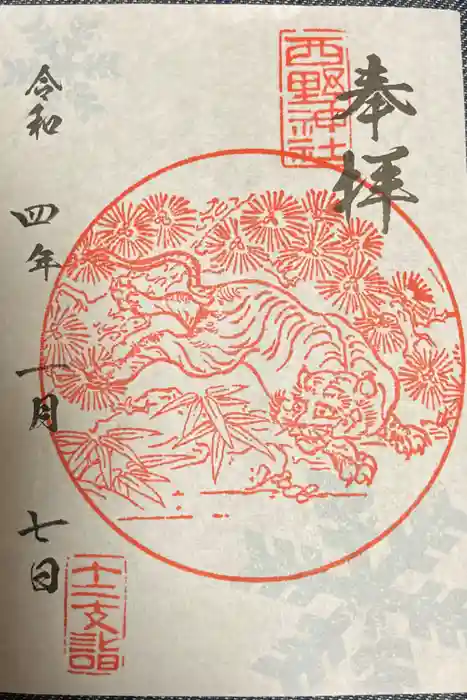 奉拝
西野神社
令和四年一月七日
十二支詣